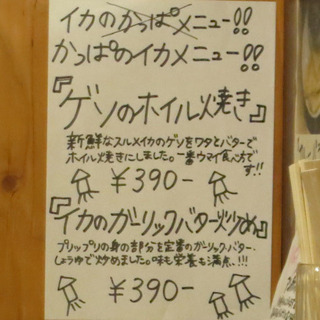 イカのかっぱメニュー!!
かっぱのイカメニュー!!
『ゲソのホイル焼き』
新鮮なスルメイカのゲソをワタとバターで
ホイル焼きにしました。一番ウマイ食べ方で
す!!
¥390-
『イカのガーリックバター炒め』
プリップリの身の部分を定番のガーリック、バター、
しょうゆで炒めました。味も栄養も満点、!!!
¥390-